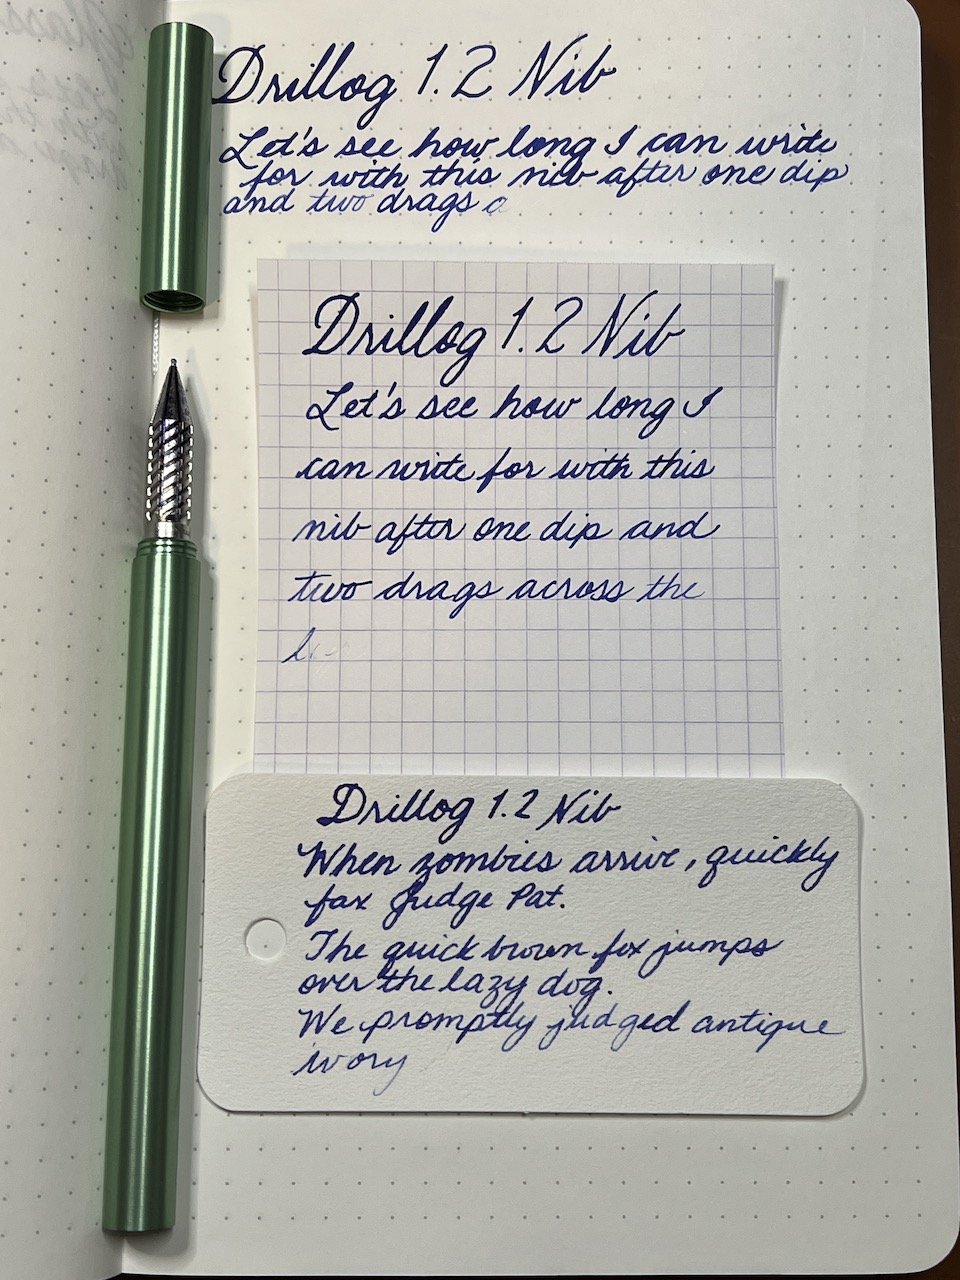 Drillog 1.2 Nib
Let's see how long I can write
for with this nib after one dip
and two drags a
Drillog 1.2 Nib
Let's see how long I
can write for with this
nib after one dip and
two drags across the
Drillog 1.2 Nib
When zombies arrive, quickly
fax Judge Pat.
The quick brown fox jumps
over the lazy dog.
We promptly judged antique
ivory